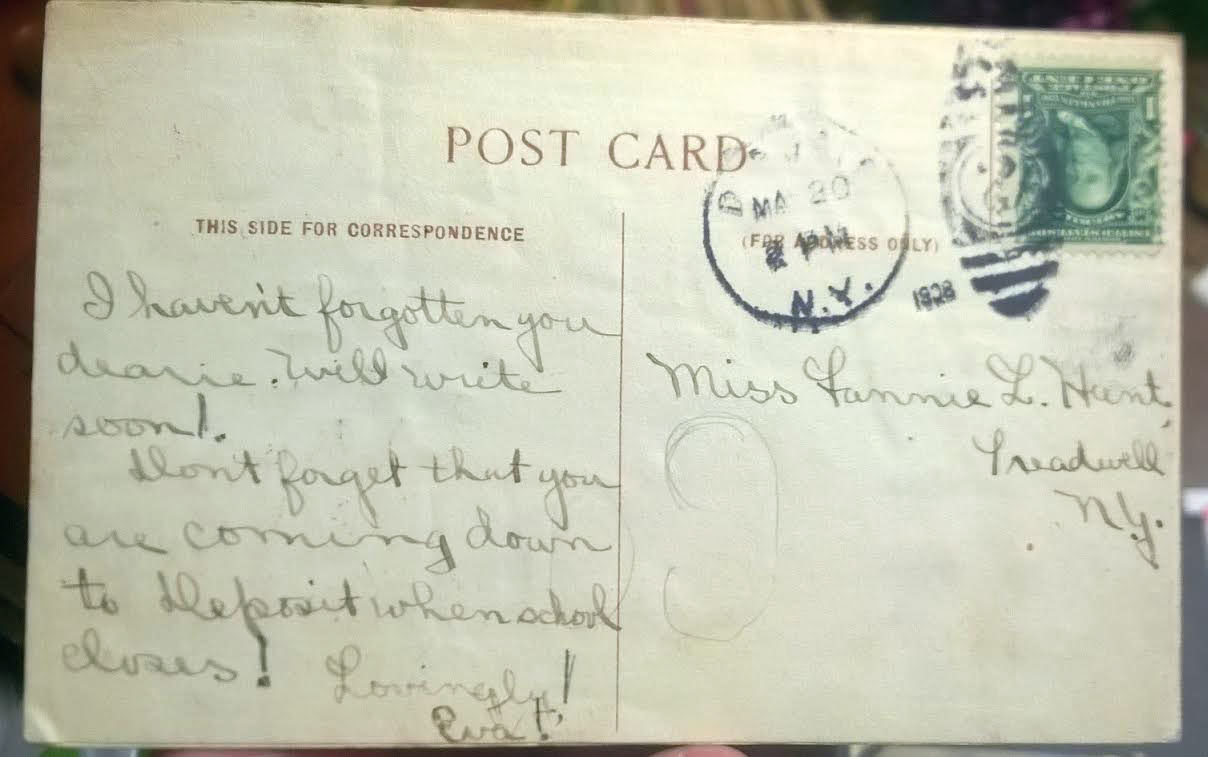 POST CARD
THIS SIDE FOR CORRESPONDENCE
(FOR ADDRESS ONLY)
MA 20
N.Y.
I haven't forgotten you
dearie. Will write
soon!.
Dont forget that you
are coming down
to Deposit when school
closes!
Lovingly!
Eva
Miss Fannie L. Hunt,
Treadwell
N.Y.